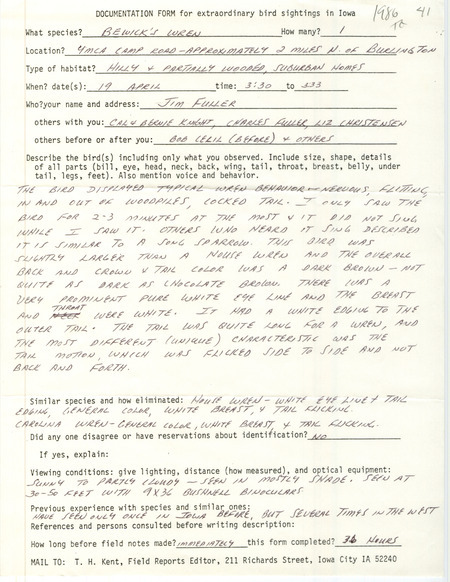 DOCUMENTATION FORM for extraordinary bird sightings in Iowa
1986 41
TC
What species? BEWICK'S WREN How many? 1
Location? YMCA CAMP ROAD-APPROXIMATELY 2 MILES N. OF BURLINGTON
Type of habitat? HILLY & PARTIALLY WOODED, SUBURBAN HOMES
When? date(s): 19 APRIL time: 3:30 to 333
Who?your name and address: JIM FULLER
others with you: CAL & BERNIE KNIGHT, CHARLES FULLER, LIZ CHRISTENSEN
others before or after you: BOB CECIL (BEFORE) & OTHERS
Describe the bird(s) including only what you observed. Include size, shape, details
of all parts (bill, eye, head, neck, back, wing, tail, throat, breast, belly, under
tail, legs, feet). Also mention voice and behavior.
THE BIRD DISPLAYED TYPICAL WREN BEHAVIOR - NERVOUS, FLITTING,
IN AND OUT OF WOODPILES, COCKED TAIL. I ONLY SAW THE
BIRD FOR 2-3 MINUTES AT THE MOST & IT DID NOT SING
WHILE I SAW IT. OTHERS WHO HEARD IT SING DESCRIBED
IT IS SIMILAR TO A SONG SPARROW. THIS BIRD WAS
SLIGHTLY LARGER THAN A HOUSE WREN AND THE OVERALL
BACK AND CROWN & TAIL COLOR WAS A DARK BROWN - NOT
QUITE AS DARK AS CHOCOLATE BROWN. THERE WAS A
VERY PROMINENT PURE WHITE EYE LINE AND THE BREAST
AND THROAT WERE WHITE. IT HAD A WHITE EDGING TO THE
OUTER TAIL. THE TAIL WAS QUITE LONG FOR A WREN, AND
THE MOST DIFFERENT (UNIQUE) CHARACTERISTIC WAS THE
TAIL MOTION, WHICH WAS FLICKED SIDE TO SIDE AND NOT
BACK AND FORTH.
Similar species and how eliminated: HOUSE WREN - WHITE EYE LINE & TAIL
EDGING, GENERAL COLOR, WHITE BREAST, & TAIL FLICKING.
CAROLINA WREN - GENERAL COLOR, WHITE BREAST, & TAIL FLICKING.
Did any one disagree or have reservations about identification? NO
If yes, explain:
Viewing conditions: give lighting, distance (how measured), and optical equipment:
SUNNY TO PARTLY CLOUDY - SEEN IN MOSTLY SHADE. SEEN AT
30-50 FEET WITH 9X36 BUSHNELL BINOCULARS
Previous experience with species and similar ones:
HAVE SEEN ONLY ONCE IN IOWA BEFORE, BUT SEVERAL TIMES IN THE WEST
References and persons consulted before writing description:
How long before field notes made? IMMEDIATELY this form completed? 36 HOURS
MAIL TO: T. H. Kent, Field Reports Editor, 211 Richards Street, Iowa City IA 52240